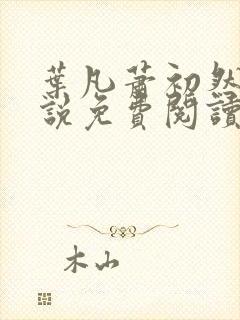 葉凡蕭初然
說免費閱讀
木山